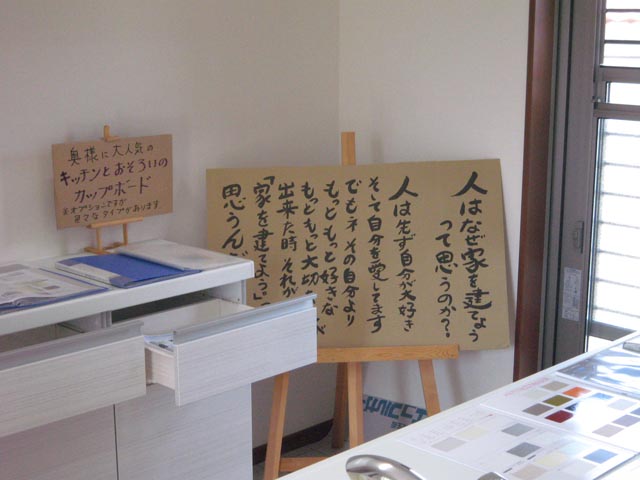 奥様に大人気の
キッチンとおそろいの
カップボード
※オプションですが
色々なタイプがあります
人はなぜ家を建てよう
って思うのか?
人は先ず自分が大好き
そして自分を愛してます
でもネその自分より
もっともっと好きな
もっともっと大切
出来た時それが
「家を建てよう」
思うんだ